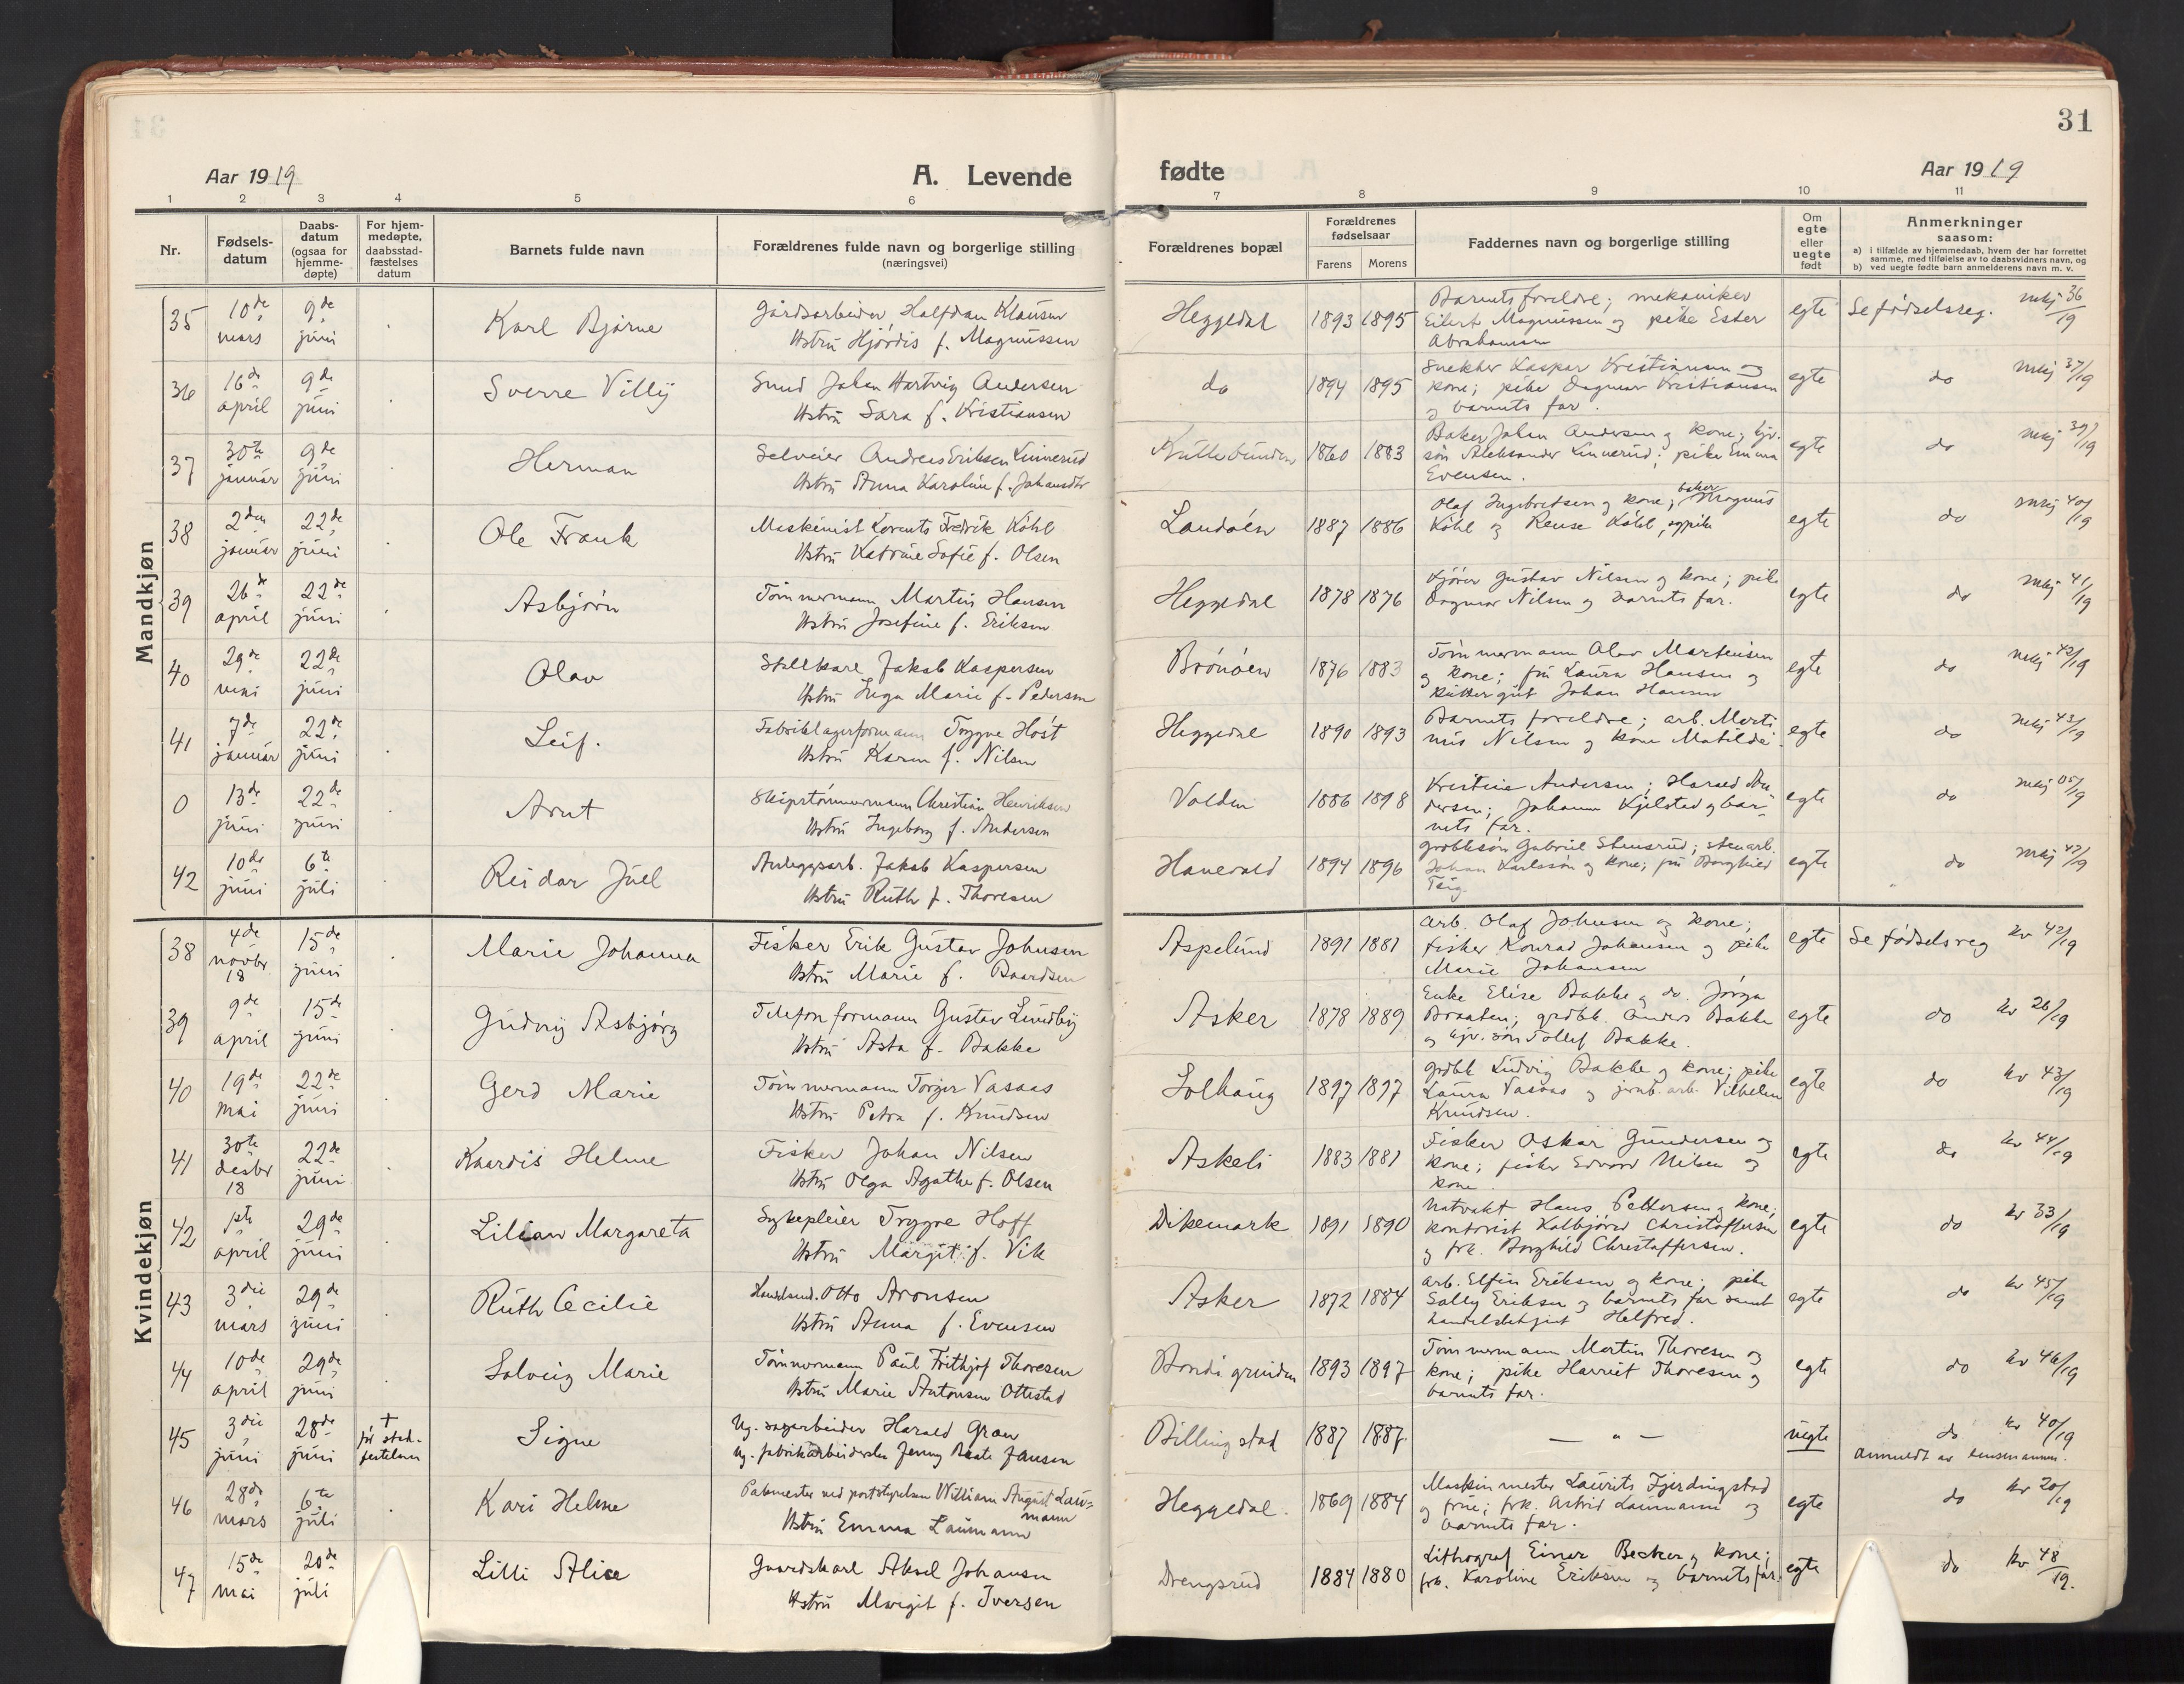 31
Aar 1919
A. Levende fødte
Aar 1919
1 2 3 4 5 6 7 8 9 10 11
Nr.
Fødsels-
datum
Daabs-
datum
(ogsaa for
hjemme-
døpte)
For hjem-
medøpte,
daabsstad-
fæstelses
datum
Barnets fulde navn
Forældrenes fulde navn og borgerlige stilling
(næringsvei)
Forældrenes bopæl
Forældrenes
fødselsaar
Farens Morens
Faddernes navn og borgerlige stilling
Om
egte
eller
uegte
født
Anmerkninger
saasom:
a) i tilfælde av hjemmedaab, hvem der har forrettet
samme, med tilføielse av to daabsvidners navn, og
b) ved uegte fødte barn anmelderens navn m. v.
Mandkjøn
35 10de mars 9de juni Karl Bjarne
Gårdsarbeider Halfdan Klausen
Hstru Hjørdis f. Magnussen
Heggedal 1893 1895
Barnets foreldre; mekaniker
Eilert Magnussen og pike Ester
Abrahamsen
egte Se fødselsreg. mkj 36/19
36 16de april 9de juni Sverre Villy
Smed Johan Hartvig Andersen
Hstru Sara f. Kristiansen
do 1894 1895
Snekker Kaspar Kristiansen og
kone; pike Dagmar Kristiansen
og barnets far.
egte do mkj 37/19
37 30te januar 9de juni Herman
Selveier Andreas Eriksen Linnerud
Hstru Anna Karoline f. Johansdtr
1860 1883
Baker Johan Andersen og kone; gjv.
søn Aleksander Linnerud; pike Emma
Evensen.
egte do mkj 39/19
38 2den januar 22de juni Ole Frank
Maskinist Lorents Fredrik Köhl
Hstru Katrine Sofie f. Olsen
Landøen 1887 1886
Olaf Ingebretsen og kone; baker Magnus
Köhl og Köhl, og pike
egte do mkj 40/19
39 26de april 22de juni Asbjørn
Tømmermann Martin Hansen
Hstru Josefine f. Eriksen
Heggedal 1878 1876
Kjører Gustav Nilsen og kone; pike
Dagmar Nilsen og barnets far.
egte do mkj 41/19
40 29de mai 22de juni Olav
Stallkarl Jakob Kaspersen
Hstru Inga Marie f. Pedersen
Brønøen 1876 1883
Tømmermann Olav Martinsen
og kone; fru Laura Hansen og
Johan Hansen
egte do mkj 42/19
41 7de januar 22de juni Leif.
Fabriklagerformann Trygve Høst
Hstru Karen f. Nilsen
Heggedal 1890 1893
Barnets foreldre; arb. Marti
nus Nilsen og kone Matilde.
egte do mkj 43/19
0 13de juni 22de juni Arnt
Skipstømmermann Christian Henriksen
Hstru Ingeborg f. Andersen
Volden 1886 1898
Kristine Andersen; Harald An-
dersen; Johann Kjelstad og bar-
nets far.
egte do mkj 05/19
42 10de juni 6te juli Reidar Juel
Anleggsarb. Jakob Kaspersen
Hstru Ruth f. Thoresen
1894 1896
Gabriel Stensrud; stenarb.
Johan Karlssøn og kone; fru Borghild
egte do mkj 47/19
Kvindekjøn
38 4de novbr 18 15de juni Marie Johanna
Fisker Erik Gustav Johnsen
Hstru Marie f. Baardsen
Aspelund 1891 1881
Arb. Olaf Johnsen og kone;
fisker Konrad Johansen og pike
Marie Johansen
egte Se fødselsreg kv 42/19
39 9de april 15de juni Gudny Asbjørg
Telefonformann Gustav Lundby
Hstru Asta f. Bakke
Asker 1878 1889
Enke Elise Bakke og do. Jørga
Braaten; grdbk. Anders Bakke
og gjv. søn Tollef Bakke.
egte do kv 26/19
40 19de mai 22de juni Gerd Marie
Tømmermann Torger Vasaas
Hstru Petra f. Knudsen
Solhaug 1897 1897
grdbk Ludvig Bakke og kone; pike
Laura Vasaas og jernb. arb. Vilhelm
Knudsen.
egte do kv 43/19
41 30te desbr 18 22de juni Kaardis Helene
Fisker Johan Nilsen
Hstru Olga Agathe f. Olsen
Askeli 1883 1881
Fisker Oskar Gundersen og
kone; fisker Edvard Nilsen og
kone
egte do kv 44/19
42 1ste april 29de juni Lilian Margareta
Sykepleier Trygve Hoff
Hstru Margit f. Vik
Dikemark 1891 1890
Natvakt Hans Pettersen og kone;
kontorist Kolbjørn Christoffersen
og frk. Borghild Christoffersen.
egte do kv 33/19
43 3die mars 29de juni Ruth Cecilie
Handelsmd. Otto Aronsen
Hstru Anna f. Evensen
Asker 1872 1884
Arb. Elfin Eriksen og kone; pike
Sally Eriksen og barnets far samt
Helfred.
egte do kv 45/19
44 10de april 29de juni Solveig Marie
Tømmermann Paul Frithjof Thoresen
Hstru Marie Antonsen Ottestad
Bondi grinden 1893 1897
Tømmermann Martin Thoresen og
kone; pike Harriet Thoresen og
barnets far.
egte do kv 46/19
45 3die juni 28de juni † før stad-
festelsen Signe
Ug. sagarbeider Harald Gran
Ug. fabrikarbeiderske Jenny Beate Jansen
Billingstad 1887 1887.
— " —
uegte do kv 40/19
anmeldt av lensmannen.
46 28de mars 6te juli Kari Helene
Pakmester ved poststyrelsen William August Lau-
mann
Hstru Emma Laumann
Heggedal. 1869 1884
Maskinmester Laurits Fjerdingstad
og frue; frk. Astrid Laumann og
barnets far.
egte do kv 20/19
47 15de mai 20de juli Lilli Alice
Gaardskarl Aksel Johansen
Hstru Margit f. Iversen
Drengsrud 1884 1880
Lithograf Einar Becker og kone;
frk. Karoline Eriksen og barnets far.
egte do kv 48/19.